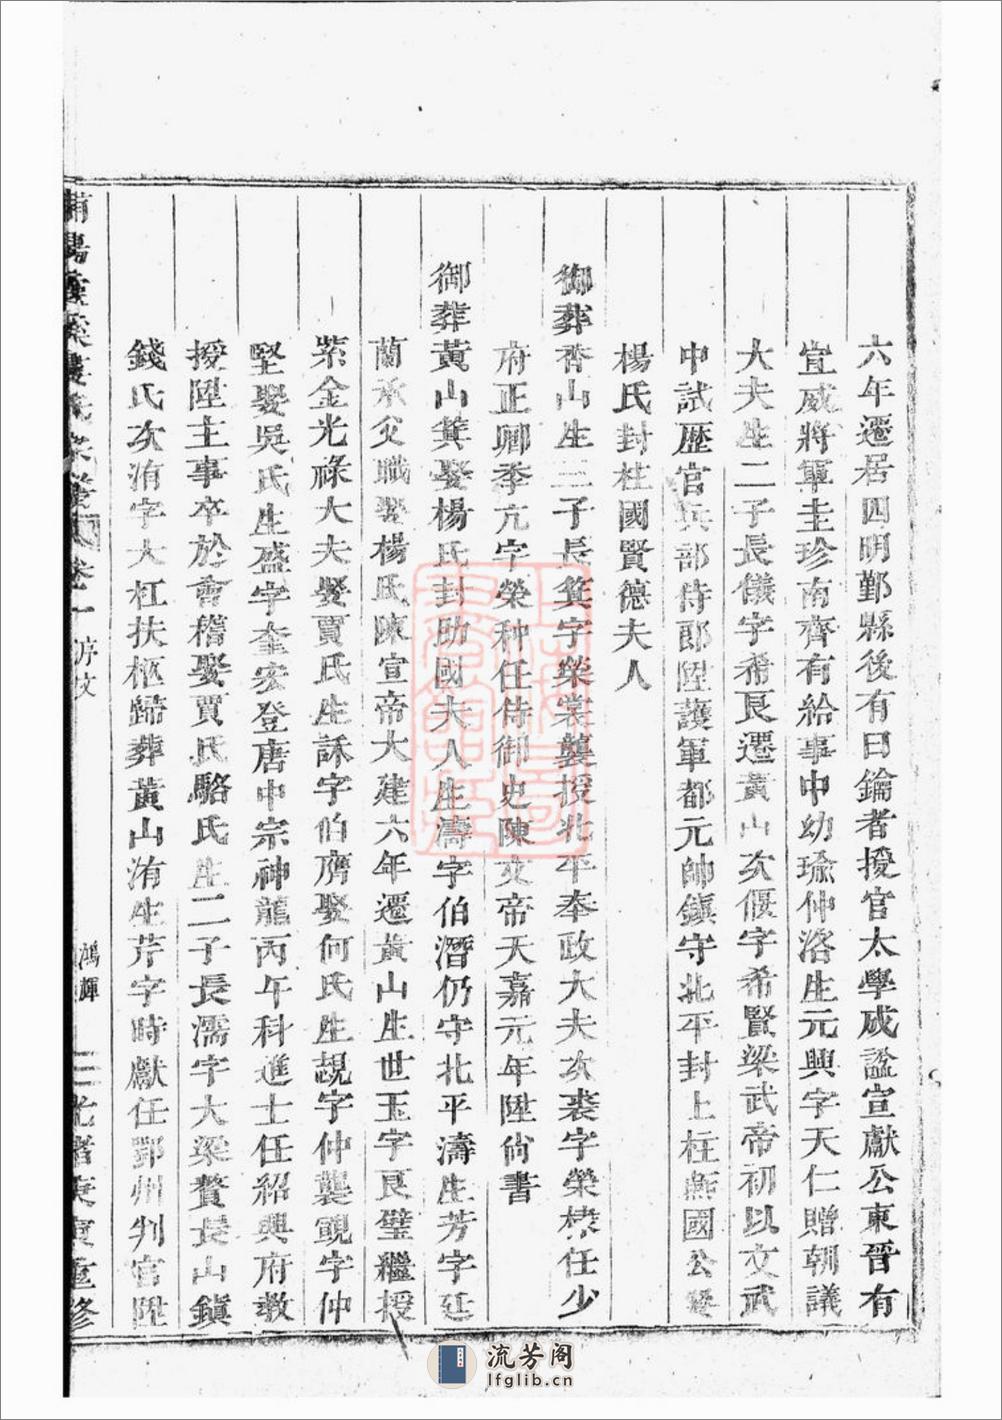 六年遷居四明鄞縣後有曰鑰者授官太學成諡宣獻公東晉有
宣威將軍圭珍南齊有給事中幼瑜仲洛生元興字天仁贈朝議
大夫生二子長儀字希良遷黃山次偃字希賢梁武帝初以文武
中試歷官兵部侍郎陞護軍都元帥鎮守北平封上柱燕國公娶
楊氏封柱國賢德夫人
御葬香山生三子長箕字榮裳襲授北平奉政大夫次裘字榮棣任少
府正卿季亢字榮种任侍御史陳文帝天嘉元年陞尙書
御葬黃山箕娶楊氏封助國夫人生濤字伯潛仍守北平濤生芳字廷
蘭承父職娶楊氏陳宣帝大建六年遷黃山生世玉字良璧繼授
紫金光祿大夫娶賈氏生訸字伯膺娶何氏生覬字仲襲覯字仲
堅娶吳氏生盛字奎宏登唐中宗神龍丙午科進士任紹興府教
授陞主事卒於會稽娶賈氏駱氏生二子長濡字大梁贅長山鎭
錢氏次洧字大杠扶柩歸葬黃山洧生芹字時獻任鄞州判官陞
氏宗譜 卷一 序文 鴻輝 三 光緒庚寅重修
流芳阁
lfglib.cn